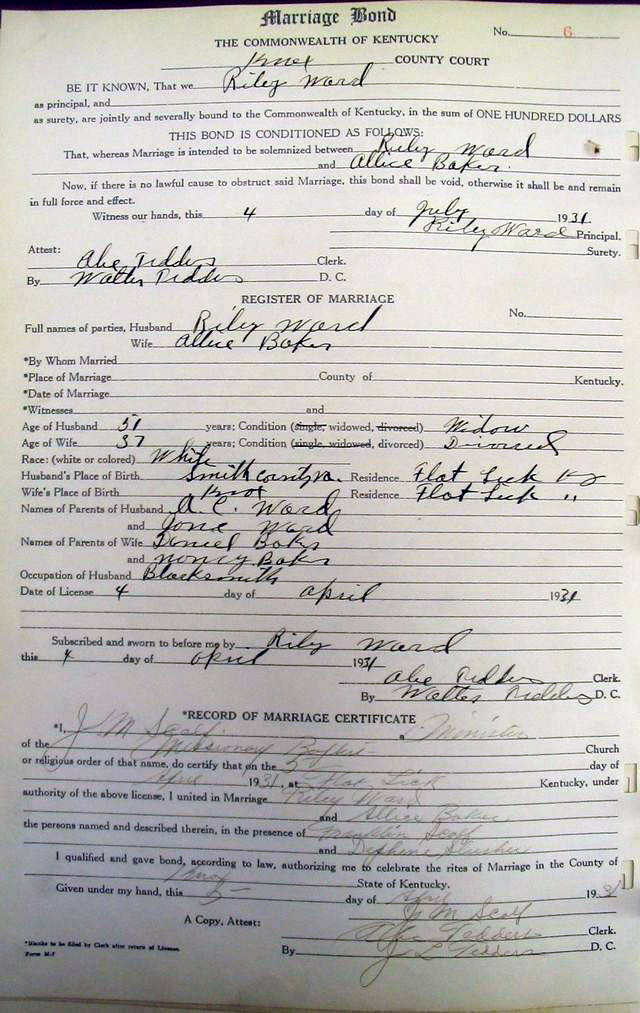 Marriage Bond
No. 6
THE COMMONWEALTH OF KENTUCKY
Knox COUNTY COURT
BE IT KNOWN, That we Riley Ward
as principal, and
as surety, are jointly and severally bound to the Commonwealth of Kentucky, in the sum of ONE HUNDRED DOLLARS
THIS BOND IS CONDITIONED AS FOLLOWS:
That, whereas Marriage is intended to be solemnized between Riley Ward
and Allice Baker.
Now, if there is no lawful cause to obstruct said Marriage, this bond shall be void, otherwise it shall be and remain
in full force and effect.
Witness our hands, this 4 day of July 1931.
Riley Ward Principal.
Surety.
Attest:
Abe Tedders Clerk.
By Walter Tedders D. C.
REGISTER OF MARRIAGE
Full names of parties, Husband Riley Ward No.
Wife Allice Baker
*By Whom Married
*Place of Marriage County of Kentucky.
*Date of Marriage
*Witnesses and
Age of Husband 51 years; Condition (single, widowed, divorced) Widow
Age of Wife 37 years; Condition (single, widowed, divorced) Divorced
Race: (white or colored) White
Husband's Place of Birth Smith county Va. Residence Flat Lick Ky
Wife's Place of Birth Knox Residence Flat Lick "
Names of Parents of Husband Ward
and Ward
Names of Parents of Wife Daniel Baker
and Nancy Baker
Occupation of Husband Blacksmith
Date of License 4 day of April 1931
Subscribed and sworn to before me by Riley Ward
this 4 day of April 1931
Abe Tedders Clerk.
By Walter Tedders D. C.
*RECORD OF MARRIAGE CERTIFICATE
*I, J M Scalf a Minister
of the Missionary Baptist Church
or religious order of that name, do certify that on the 5 day of
April 1931, at Flat Lick Kentucky, under
authority of the above license, I united in Marriage Riley Ward
and Allice Baker
the persons named and described therein, in the presence of Franklin Scalf
and
I qualified and gave bond, according to law, authorizing me to celebrate the rites of Marriage in the County of
Knox State of Kentucky.
Given under my hand, this 5 day of April 1931
J M Scalf
A Copy, Attest: Abe Tedders Clerk.
By J L Tedders D. C.
*Blanks to be filed by Clerk after return of License.
Form M-7